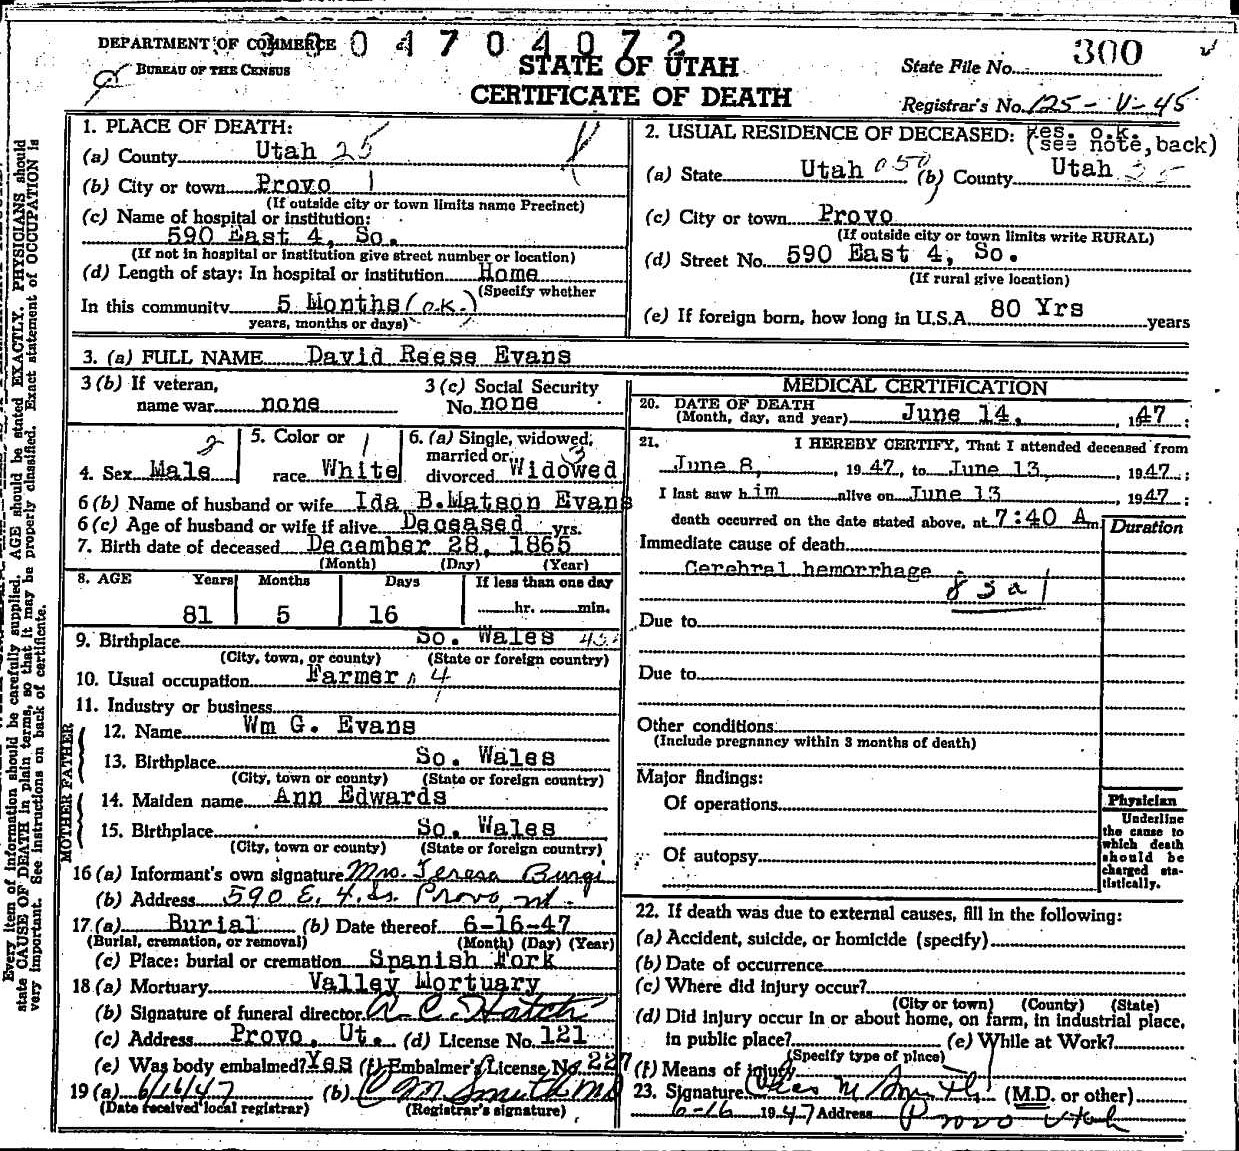 DEPARTMENT OF COMMERCE
BUREAU OF THE CENSUS
704072
STATE OF UTAH
CERTIFICATE OF DEATH
State File No. 300
Registrar's No. 125-V-45
Every item of information should be carefully supplied. AGE should be stated EXACTLY. PHYSICIANS should
state CAUSE OF DEATH in plain terms, so that it may be properly classified. Exact statement of OCCUPATION is
very important. See instructions on back of certificate.
1. PLACE OF DEATH:
(a) County Utah 25
(b) City or town Provo 1
(If outside city or town limits name Precinct)
(c) Name of hospital or institution:
590 East 4, So.
(If not in hospital or institution give street number or location)
(d) Length of stay: In hospital or institution Home
(Specify whether
In this community 5 Months (o.k.)
years, months or days)
2. USUAL RESIDENCE OF DECEASED: Res. o.k.
(see note, back)
(a) State Utah 050 (b) County Utah 25
(c) City or town Provo
(If outside city or town limits write RURAL)
(d) Street No. 590 East 4, So.
(If rural give location)
(e) If foreign born, how long in U.S.A. 80 Yrs years
3. (a) FULL NAME David Reese Evans
3 (b) If veteran,
name war none
3 (c) Social Security
No. none
4. Sex Male 2
5. Color or 1
race White
6. (a) Single, widowed,
married or 3
divorced Widowed
6 (b) Name of husband or wife Ida B.Matson Evans
6 (c) Age of husband or wife if alive Deceased yrs.
7. Birth date of deceased December 28, 1865
(Month) (Day) (Year)
8. AGE Years Months Days If less than one day
81 5 16 hr. min.
9. Birthplace So. Wales
(City, town, or county) (State or foreign country)
10. Usual occupation Farmer 4
11. Industry or business
FATHER
12. Name Wm G. Evans
13. Birthplace So. Wales
(City, town or county) (State or foreign country)
MOTHER
14. Maiden name Ann Edwards
15. Birthplace So. Wales
(City, town or county) (State or foreign country)
16 (a) Informant's own signature Mrs. Teresa Burgi
(b) Address 590 E. 4. So. Provo, Ut.
17 (a) Burial (b) Date thereof 6-16-47
(Burial, cremation, or removal) (Month) (Day) (Year)
(c) Place: burial or cremation Spanish Fork
18 (a) Mortuary Valley Mortuary
(b) Signature of funeral director A. C. Hatch
(c) Address Provo, Ut. (d) License No. 121
(e) Was body embalmed? Yes (f) Embalmer's License No. 227
19 (a) 6/16/47 (b) C M Smith MD
(Date received local registrar) (Registrar's signature)
MEDICAL CERTIFICATION
20. DATE OF DEATH
(Month, day, and year) June 14, 1947
21. I HEREBY CERTIFY, That I attended deceased from
June 8, 1947, to June 13, 1947;
I last saw him alive on June 13 1947;
death occurred on the date stated above, at 7:40 A m
Duration
Immediate cause of death
Cerebral hemorrhage
83a1
Due to
Due to
Other conditions
(Include pregnancy within 3 months of death)
Major findings:
Of operations
Of autopsy
Physician
Underline
the cause to
which death
should be
charged sta-
tistically.
22. If death was due to external causes, fill in the following:
(a) Accident, suicide, or homicide (specify)
(b) Date of occurrence
(c) Where did injury occur?
(City or town) (County) (State)
(d) Did injury occur in or about home, on farm, in industrial place,
in public place? (e) While at Work?
(Specify type of place)
(f) Means of injury
23. Signature Chas M Smith (M.D. or other)
6-16 1947 Address Provo Utah